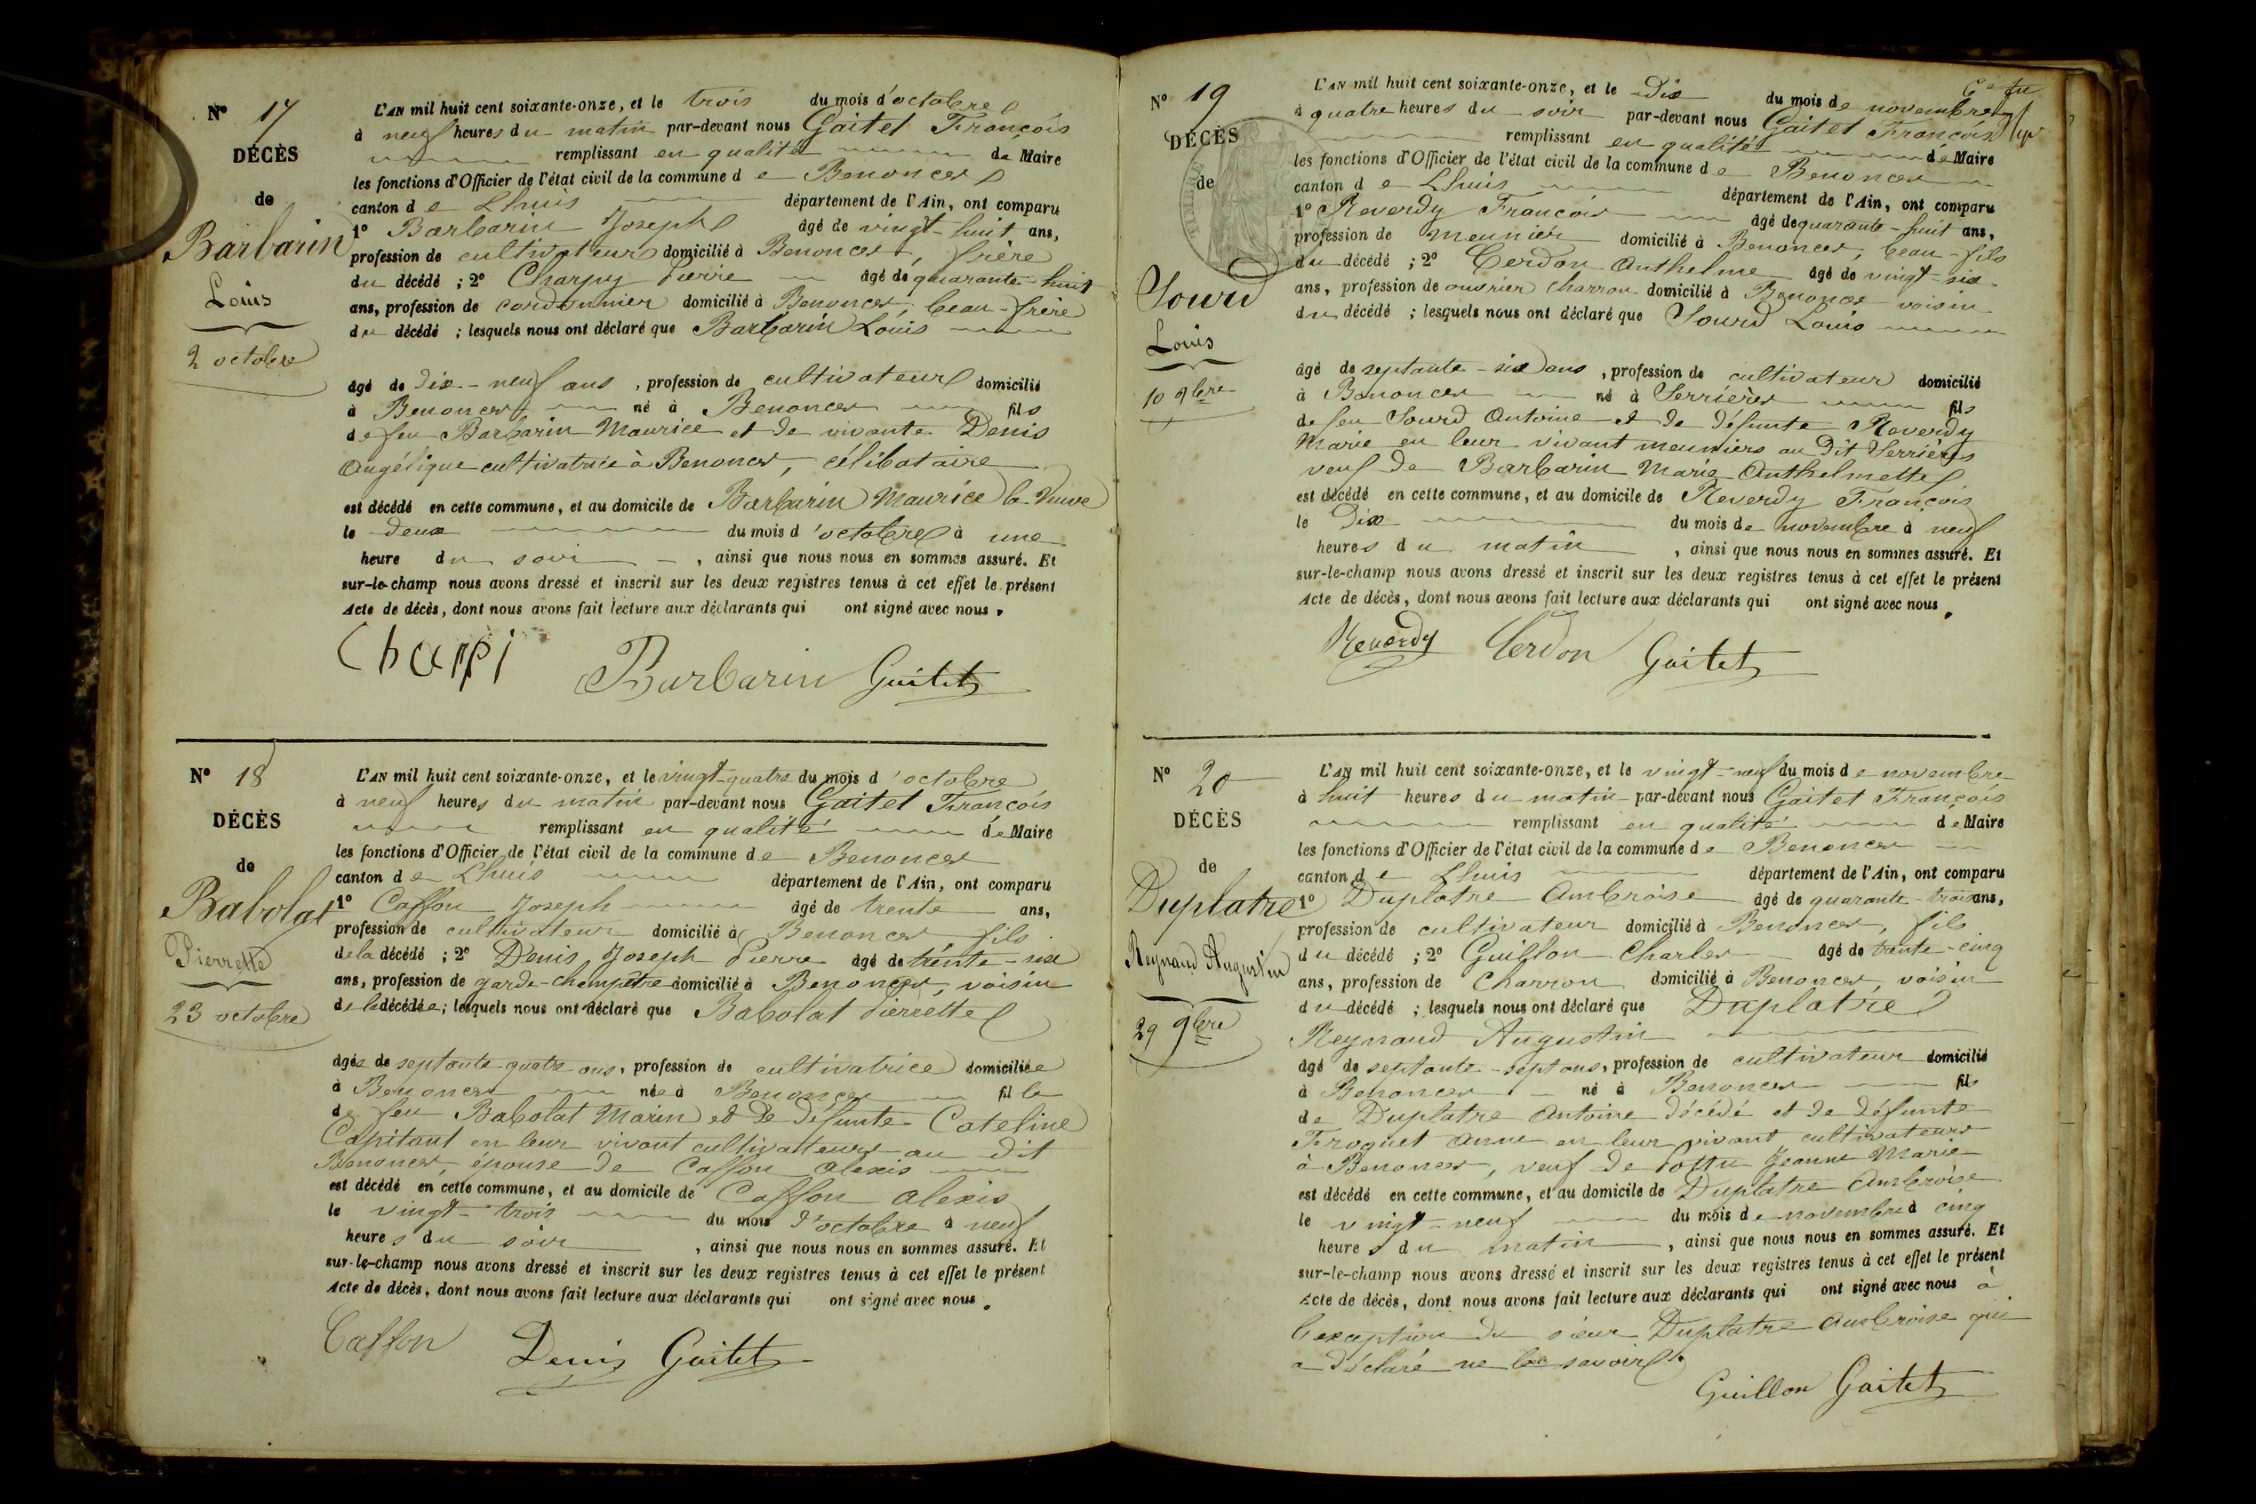 N° 17
DÉCÈS
de
Barbarin
Louis
2 octobre
L'AN mil huit cent soixante-onze, et le trois du mois d'octobre
à neuf heures du matin par-devant nous Gaitet François
remplissant en qualité de Maire
les fonctions d'Officier de l'état civil de la commune de Benonces
canton de Lhuis département de l'Ain, ont comparu
1° Barbarin Joseph âgé de vingt-huit ans,
profession de cultivateur domicilié à Benonces, frère
du décédé ; 2° Charpy Pierre âgé de quarante-huit
ans, profession de cordonnier domicilié à Benonces, beau-frère
du décédé ; lesquels nous ont déclaré que Barbarin Louis
âgé de dix-neuf ans, profession de cultivateur domicilié
à Benonces né à Benonces fils
de feu Barbarin Maurice et de vivante Denis
Angélique cultivatrice à Benonces, célibataire
est décédé en cette commune, et au domicile de Barbarin Maurice la veuve
le deux du mois d'octobre à une
heure du soir, ainsi que nous nous en sommes assuré. Et
sur-le-champ nous avons dressé et inscrit sur les deux registres tenus à cet effet le présent
Acte de décès, dont nous avons fait lecture aux déclarants qui ont signé avec nous.
Charpi Barbarin Gaitet
N° 18
DÉCÈS
de
Babolat
Pierrette
23 octobre
L'AN mil huit cent soixante-onze, et le vingt-quatre du mois d'octobre
à neuf heures du matin par-devant nous Gaitet François
remplissant en qualité de Maire
les fonctions d'Officier de l'état civil de la commune de Benonces
canton de Lhuis département de l'Ain, ont comparu
1° Caffon Joseph âgé de trente ans,
profession de cultivateur domicilié à Benonces fils
de la décédé ; 2° Denis Joseph Pierre âgé de trente-six
ans, profession de garde-champêtre domicilié à Benonces, voisin
de la décédée ; lesquels nous ont déclaré que Babolat Pierrette
âgée de septante-quatre ans, profession de cultivatrice domiciliée
à Benonces née à Benonces fille
de feu Babolat Marin et de défunte Cateline
Capitant en leur vivant cultivateurs au dit
Benonces, épouse de Caffon Alexis
est décédé en cette commune, et au domicile de Caffon Alexis
le vingt-trois du mois d'octobre à neuf
heures du soir, ainsi que nous nous en sommes assuré. Et
sur-le-champ nous avons dressé et inscrit sur les deux registres tenus à cet effet le présent
Acte de décès, dont nous avons fait lecture aux déclarants qui ont signé avec nous.
Caffon Denis Gaitet
N° 19
DÉCÈS
de
Sourd
Louis
10 9bre
L'AN mil huit cent soixante-onze, et le dix du mois de novembre
à quatre heures du soir par-devant nous Gaitet François
remplissant en qualité de Maire
les fonctions d'Officier de l'état civil de la commune de Benonces
canton de Lhuis département de l'Ain, ont comparu
1° Reverdy François âgé de quarante-huit ans,
profession de meunier domicilié à Benonces, beau-fils
du décédé ; 2° Cerdon Anthelme âgé de vingt-six
ans, profession de ouvrier charron domicilié à Benonces voisin
du décédé ; lesquels nous ont déclaré que Sourd Louis
âgé de septante-six ans, profession de cultivateur domicilié
à Benonces né à Serrières fils
de feu Sourd Antoine et de défunte Reverdy
Marie en leur vivant meuniers au dit Serrières
veuf de Barbarin Marie Anthelmette
est décédé en cette commune, et au domicile de Reverdy François
le dix du mois de novembre à neuf
heures du matin, ainsi que nous nous en sommes assuré. Et
sur-le-champ nous avons dressé et inscrit sur les deux registres tenus à cet effet le présent
Acte de décès, dont nous avons fait lecture aux déclarants qui ont signé avec nous.
Reverdy Cerdon Gaitet
N° 20
DÉCÈS
de
Duplatre
Reynaud Augustin
29 9bre
L'AN mil huit cent soixante-onze, et le vingt-neuf du mois de novembre
à huit heures du matin par-devant nous Gaitet François
remplissant en qualité de Maire
les fonctions d'Officier de l'état civil de la commune de Benonces
canton de Lhuis département de l'Ain, ont comparu
1° Duplatre Ambroise âgé de quarante-trois ans,
profession de cultivateur domicilié à Benonces, fils
du décédé ; 2° Guillon Charles âgé de trente-cinq
ans, profession de charron domicilié à Benonces, voisin
du décédé ; lesquels nous ont déclaré que Duplatre
Reynaud Augustin
âgé de septante-sept ans, profession de cultivateur domicilié
à Benonces né à Benonces fils
de Duplatre Antoine décédé et de défunte
Froquet Anne en leur vivant cultivateurs
à Benonces, veuf de Pottu Jeanne Marie
est décédé en cette commune, et au domicile de Duplatre Ambroise
le vingt-neuf du mois de novembre à cinq
heures du matin, ainsi que nous nous en sommes assuré. Et
sur-le-champ nous avons dressé et inscrit sur les deux registres tenus à cet effet le présent
Acte de décès, dont nous avons fait lecture aux déclarants qui ont signé avec nous à
l'exception du sieur Duplatre Ambroise qui
a déclaré ne le savoir.
Guillon Gaitet